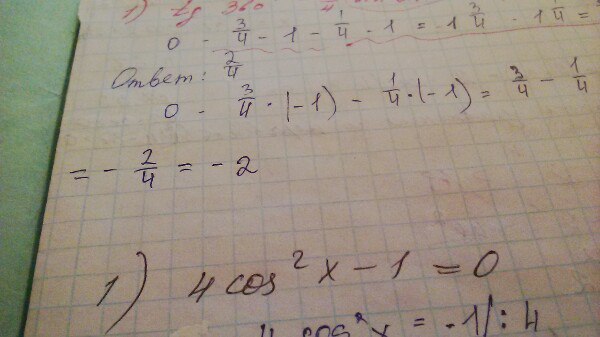 1) tg 360
0 - 3/4 - 1 - 1/4 - 1 = 1 3/4 - 1 1/4 =
Ответ: 2/4
0 - 3/4 · (-1) - 1/4 · (-1) = 3/4 - 1/4
= - 2/4 = - 2
1) 4 cos² x - 1 = 0
4 cos² x = -1 | : 4